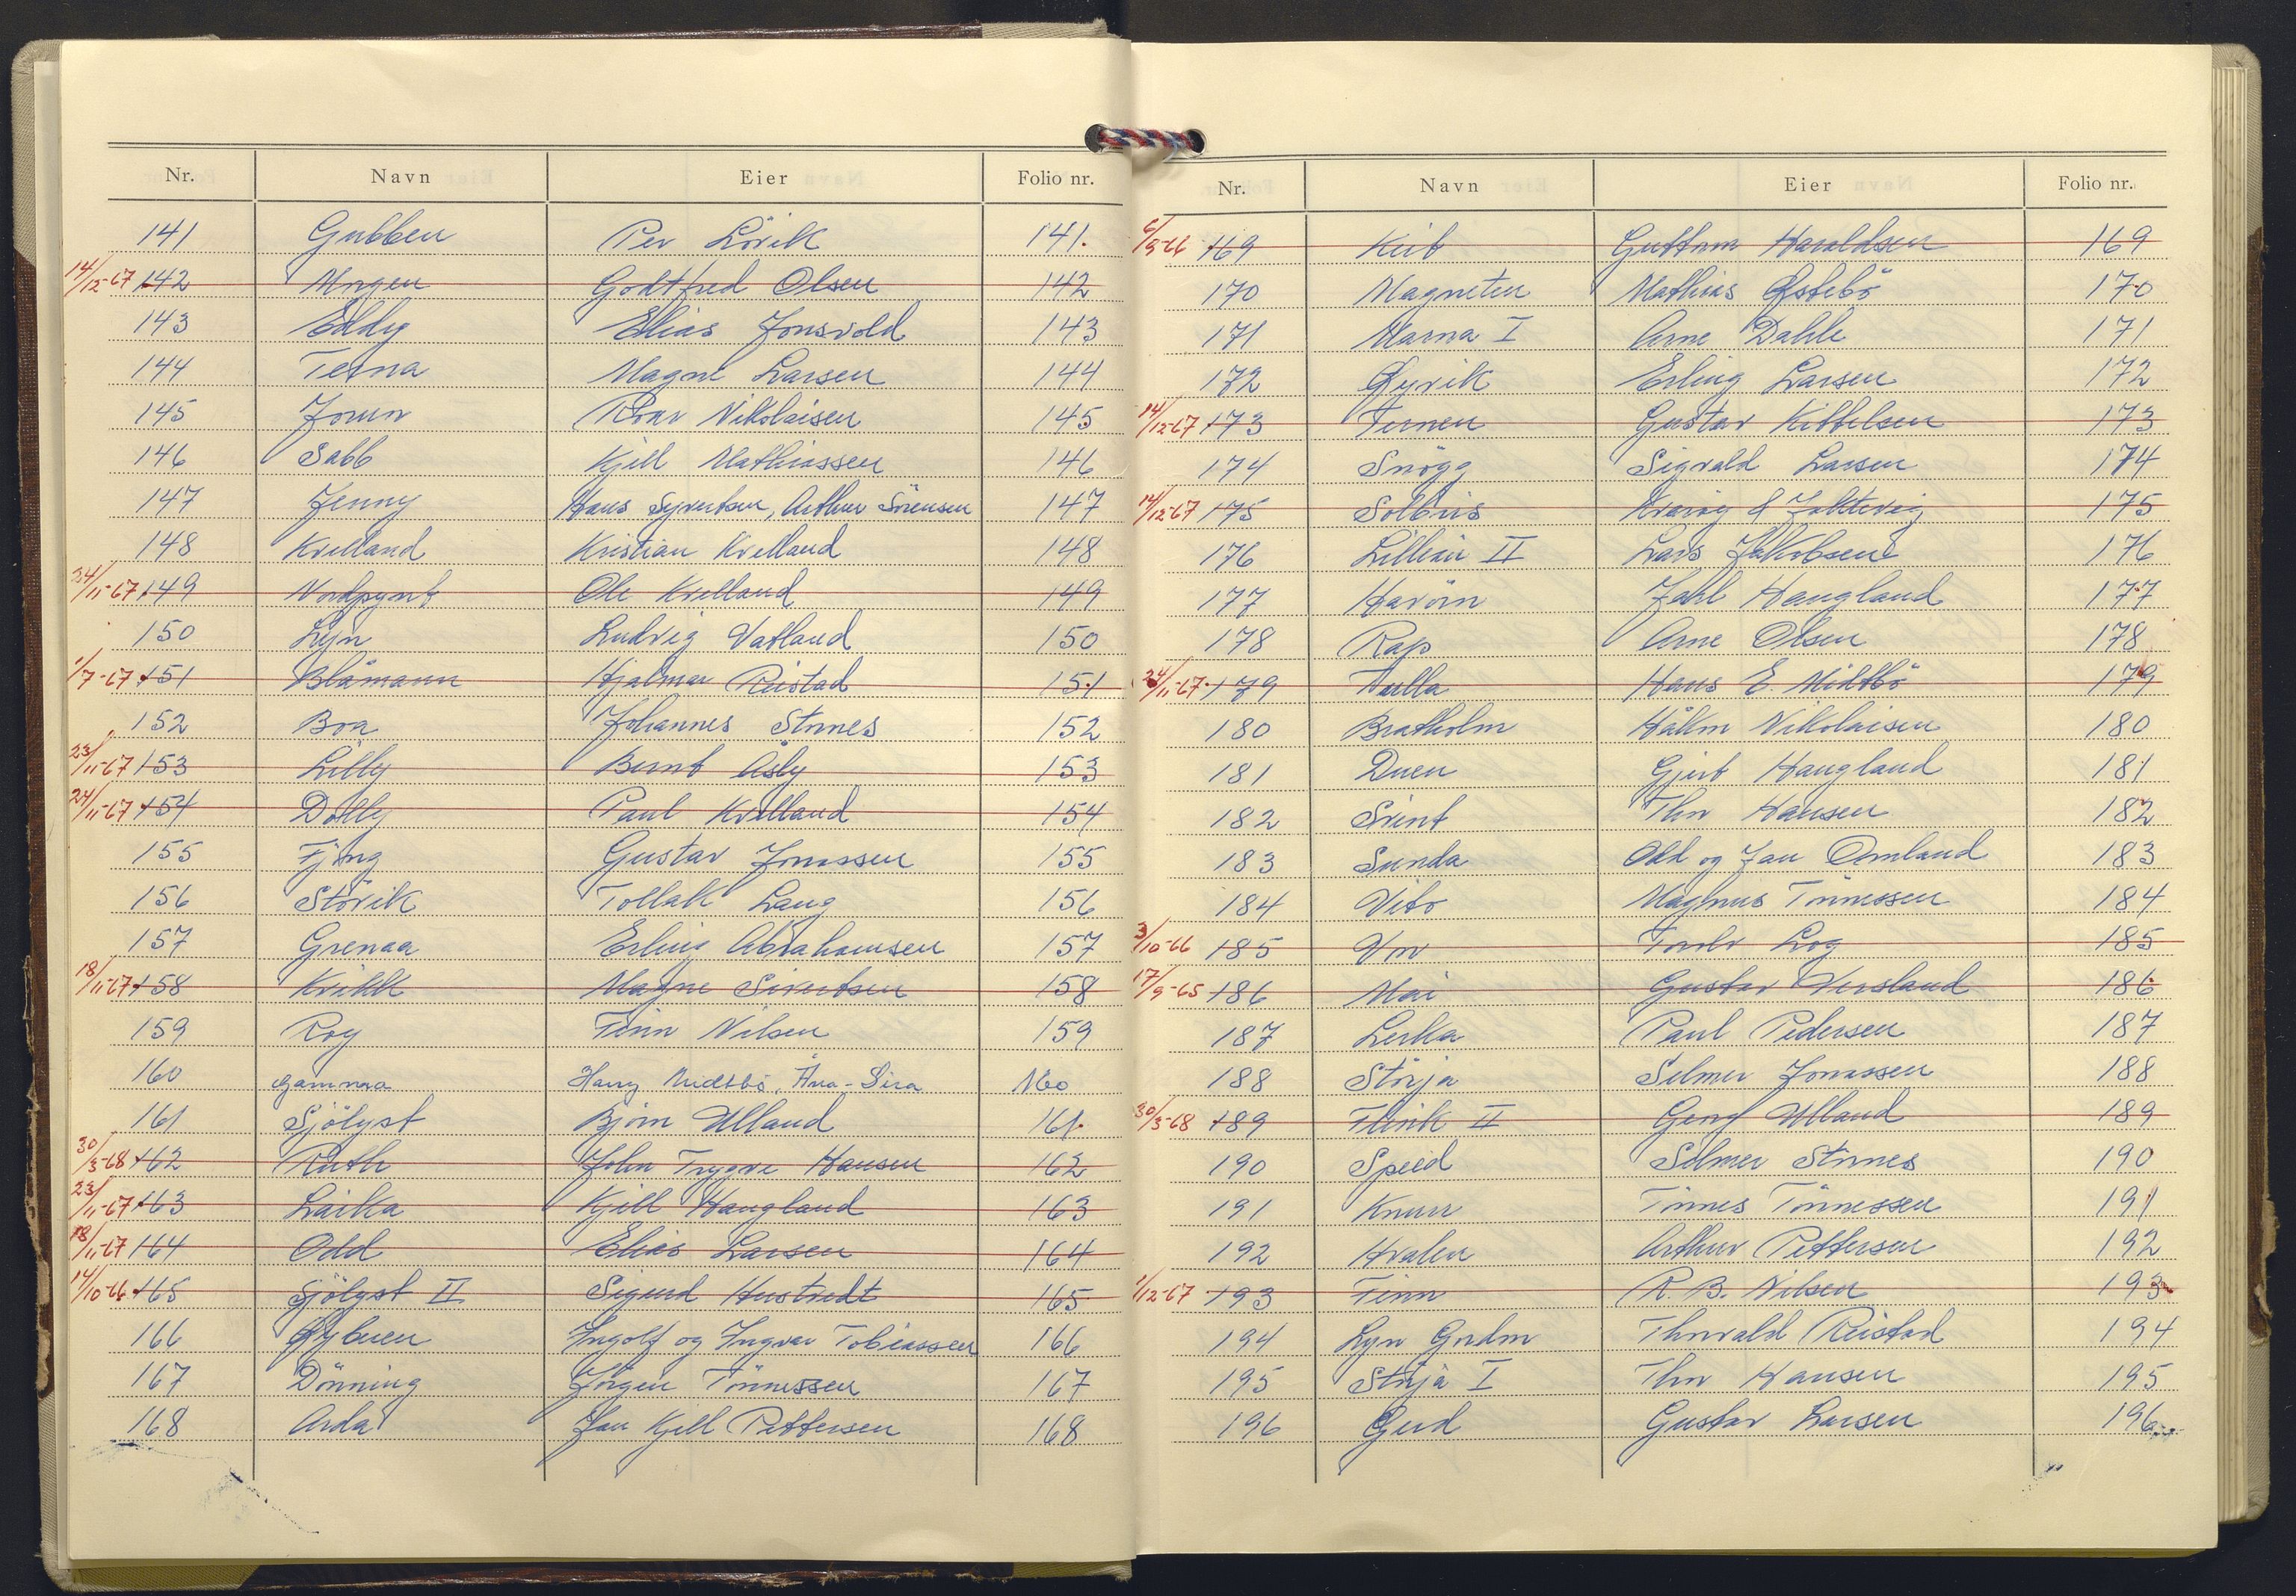 Nr. Navn Eier Folio nr.
141 Gubben Per Lövik 141.
14/12-67 142 Ungen Godtfred Olsen 142
143 Eddy Elias Jonsvold 143
144 Terna Magne Larsen 144
145 Jorun Roar Nikolaisen 145
146 Sabb Kjell Mathiassen 146
147 Jenny Hans Syvertsen, Arthur Sörensen 147
148 Kvelland Kristian Kvelland 148
24/11-67 149 Nordpynt Ole Kvelland 149
150 Lyn Ludvig Vatland 150
1/7-67 151 Blåmann Hjalmar Reistad 151
152 Boa Johannes Stornes 152
23/11-67 153 Lilly Bernt Åsby 153
24/11-67 154 Dolly Paul Kvelland 154
155 Fjong Gustav Jonassen 155
156 Störik Tollak Laug 156
157 Grenaa Erling Abrahamsen 157
18/11-67 158 Kvikk Magne Sivertsen 158
159 Roy Finn Nilsen 159
160 Gamma Harry Midtbö, Åna-Sira 160
161 Sjölyst Björn Ulland 161.
30/3-68 162 Ruth John Trygve Hansen 162
23/11-67 163 Laika Kjell Haugland 163
18/11-67 164 Odd Elias Larsen 164
14/10-66 165 Sjölyst II Sigurd Hustvedt 165
166 Öybuen Ingolf og Ingvar Tobiassen 166
167 Dönning Jörgen Tönnessen 167
168 Arda Jan Kjell Pettersen 168
Nr. Navn Eier Folio nr.
6/9-66 169 Keib Guttorm Haraldsen 169
170 Magneten Mathias Østebö 170
171 Marna I Arne Dahle 171
172 Øyvik Erling Larsen 172
14/12-67 173 Ternen Gustav Kittelsen 173
174 Snögg Sigvald Larsen 174
14/12-67 175 Solbris 175
176 Lillian II Lars Jakobsen 176
177 Havörn Jahl Haugland 177
178 Rap Arne Olsen 178
24/11-67 179 Tulla Hans E. Midtbö 179
180 Bratholm Håkon Nikolaisen 180
181 Duen Gjert Haugland 181
182 Svint Thor Hansen 182
183 Sunda Odd og Jan Omland 183
184 Vito Magnus Tönnessen 184
3/10-66 185 Vor Torolv Log 185
17/9-65 186 Mai Gustav Versland 186
187 Lerka Paul Pedersen 187
188 Störja Selmer Jonassen 188
30/3-68 189 Flink II Georg Ulland 189
190 Speed Selmer Stornes 190
191 Knurr Tönnes Tönnessen 191
192 Hvalen Arthur Pettersen 192
1/12-67 193 Finn R. B. Nilsen 193
194 Lyn Gordon Thorvald Reistad 194
195 Störja I Thor Hansen 195
196 Gerd Gustav Larsen 196